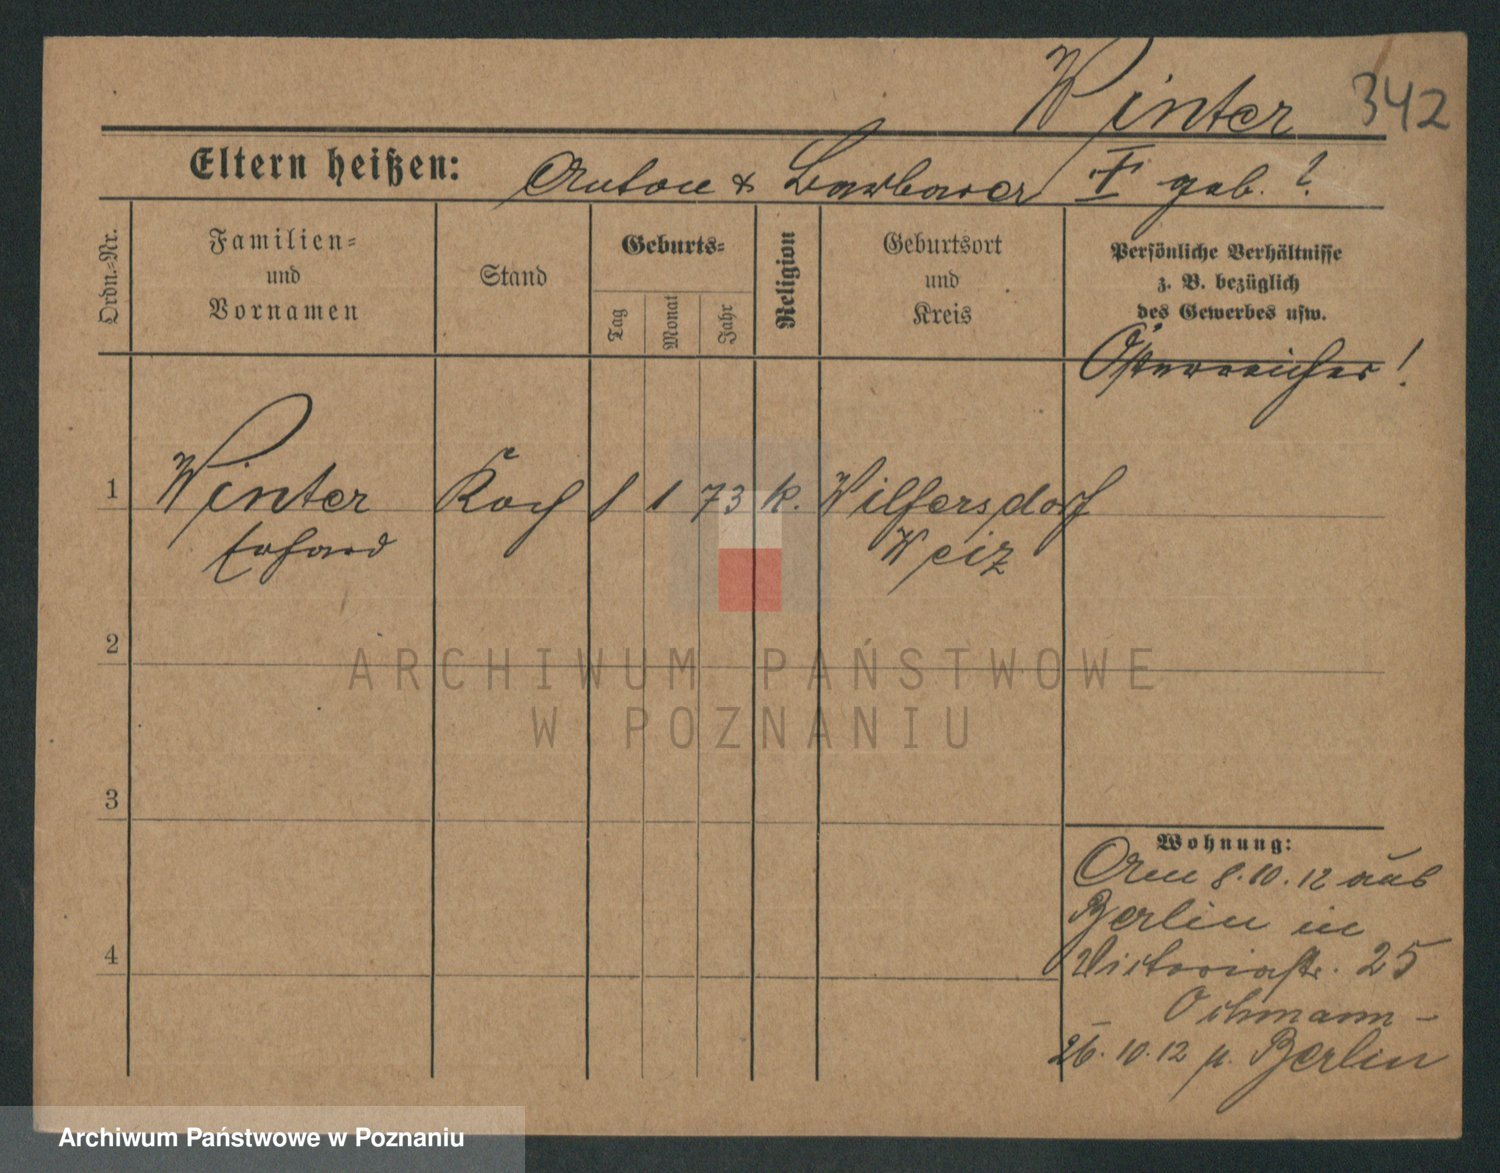 Winter 342
Eltern heißen: Anton & Barbara geb. ?
Ordn.-Nr.
Familien-
und
Vornamen
Stand
Geburts-
Tag
Monat
Jahr
Religion
Geburtsort
und
Kreis
Persönliche Verhältnisse
z. B. bezüglich
des Gewerbes usw.
Österreicher!
1 Winter Koch 1 73 k. Wilfersdorf
Erhard Weiz
2
3
4
Wohnung:
8.10.12 aus
Berlin in
Victoriastr. 25
Ochmann -
26.10.12 n. Berlin
ARCHIWUM PAŃSTWOWE
W POZNANIU
Archiwum Państwowe w Poznaniu